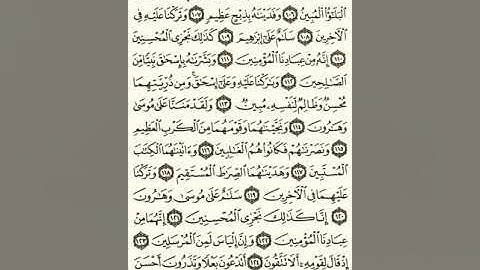 ٱلْبَلَٰٓؤُا۟ ٱلْمُبِينُ ١٠٦ وَفَدَيْنَٰهُ بِذِبْحٍ عَظِيمٍ ١٠٧ وَتَرَكْنَا عَلَيْهِ فِى
ٱلْءَاخِرِينَ ١٠٨ سَلَٰمٌ عَلَىٰٓ إِبْرَٰهِيمَ ١٠٩ كَذَٰلِكَ نَجْزِى ٱلْمُحْسِنِينَ
١١٠ إِنَّهُۥ مِنْ عِبَادِنَا ٱلْمُؤْمِنِينَ ١١١ وَبَشَّرْنَٰهُ بِإِسْحَٰقَ نَبِيًّا مِّنَ
ٱلصَّٰلِحِينَ ١١٢ وَبَٰرَكْنَا عَلَيْهِ وَعَلَىٰٓ إِسْحَٰقَ ۚ وَمِن ذُرِّيَّتِهِمَا
مُحْسِنٌ وَظَالِمٌ لِّنَفْسِهِۦ مُبِينٌ ١١٣ وَلَقَدْ مَنَنَّا عَلَىٰ مُوسَىٰ
وَهَٰرُونَ ١١٤ وَنَجَّيْنَٰهُمَا وَقَوْمَهُمَا مِنَ ٱلْكَرْبِ ٱلْعَظِيمِ
١١٥ وَنَصَرْنَٰهُمْ فَكَانُوا۟ هُمُ ٱلْغَٰلِبِينَ ١١٦ وَءَاتَيْنَٰهُمَا ٱلْكِتَٰبَ
ٱلْمُسْتَبِينَ ١١٧ وَهَدَيْنَٰهُمَا ٱلصِّرَٰطَ ٱلْمُسْتَقِيمَ ١١٨ وَتَرَكْنَا
عَلَيْهِمَا فِى ٱلْءَاخِرِينَ ١١٩ سَلَٰمٌ عَلَىٰ مُوسَىٰ وَهَٰرُونَ
١٢٠ إِنَّا كَذَٰلِكَ نَجْزِى ٱلْمُحْسِنِينَ ١٢١ إِنَّهُمَا مِنْ
عِبَادِنَا ٱلْمُؤْمِنِينَ ١٢٢ وَإِنَّ إِلْيَاسَ لَمِنَ ٱلْمُرْسَلِينَ ١٢٣
إِذْ قَالَ لِقَوْمِهِۦٓ أَلَا تَتَّقُونَ ١٢٤ أَتَدْعُونَ بَعْلًا وَتَذَرُونَ أَحْسَنَ